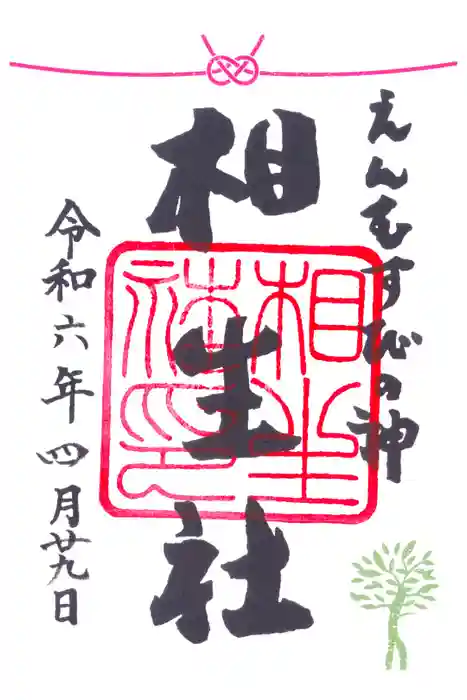 えんむすびの神
相生社
相生社印
令和六年四月廿九日